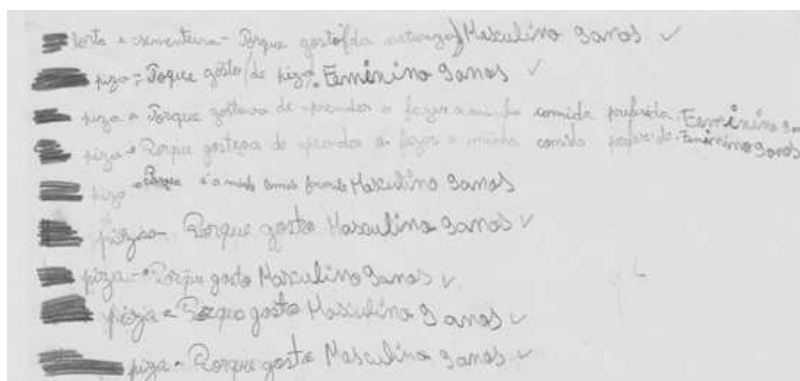 horta e sementeira - Porque gosto (da natureza) Masculino 9 anos ✓
piza - Porque gosto (de piza). Feminino 9 anos ✓
piza - Porque gostava de aprender a fazer a minha comida preferida. Feminino 9 an
piza - Porque gostava de aprender a fazer a minha comida preferida. Feminino 9 anos
piza - Porque é a minha Masculino 9 anos
pizza - Porque gosto Masculino 9 anos ✓
piza - Porque gosto Masculino 9 anos ✓
pizza - Porque gosto Masculino 9 anos ✓
piza - Porque gosto Masculino 9 anos ✓